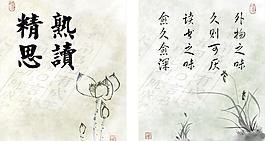 熟讀
精思
外物之味
久則可厌
读书之味
愈久愈深